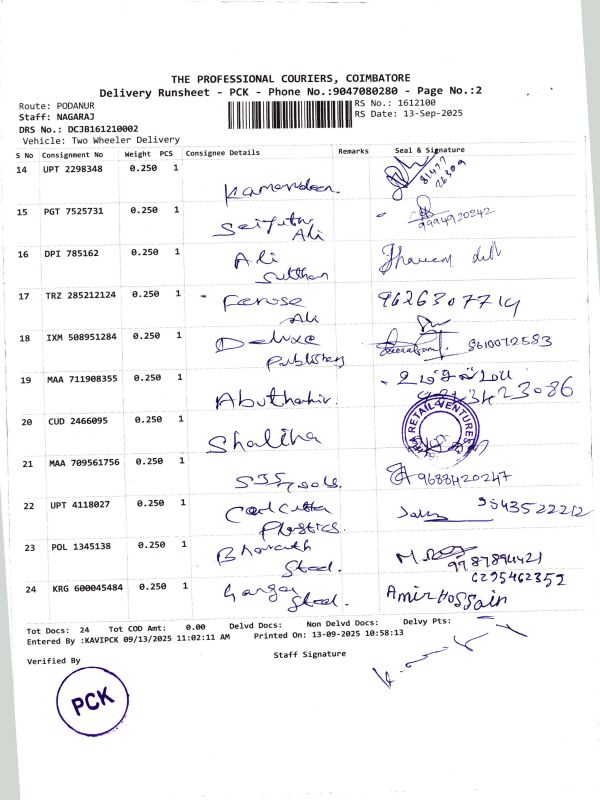 THE PROFESSIONAL COURIERS, COIMBATORE
Delivery Runsheet - PCK - Phone No.:9047080280 - Page No.:2
Route: PODANUR
RS No.: 1612100
Staff: NAGARAJ
RS Date: 13-Sep-2025
DRS No.: DCJB161210002
Vehicle: Two Wheeler Delivery
S No Consignment No Weight PCS Consignee Details Remarks Seal & Signature
14 UPT 2298348 0.250 1
15 PGT 7525731 0.250 1 Ali 9994920242
16 DPI 785162 0.250 1 Ali
Sulthan
17 TRZ 285212124 0.250 1 Feruse
Ali 9626307714
18 IXM 508951284 0.250 1 Deluxe
Publishers 8610072583
19 MAA 711908355 0.250 1 Abuthahir.
20 CUD 2466095 0.250 1 Shaliha RETAIL VENTURES
21 MAA 709561756 0.250 1 SJS Tools. 9688420247
22 UPT 4118027 0.250 1 Coal Cutter
Plastics. 9843522212
23 POL 1345138 0.250 1 Bharath
Steel. 9787894421
6295462352
24 KRG 600045484 0.250 1 Ganga
Steel. Amir Hossain
Tot Docs: 24 Tot COD Amt: 0.00 Delvd Docs: Non Delvd Docs: Delvy Pts:
Entered By :KAVIPCK 09/13/2025 11:02:11 AM Printed On: 13-09-2025 10:58:13
Verified By
Staff Signature
PCK